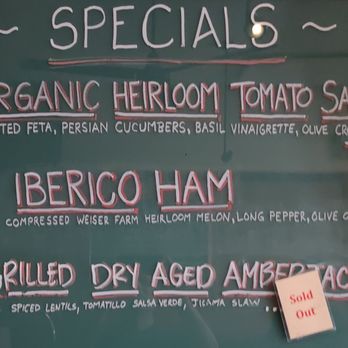 ~ SPECIALS ~
RGANIC HEIRLOOM TOMATO SA
TED FETA, PERSIAN CUCUMBERS, BASIL VINAIGRETTE, OLIVE CR
IBERICO HAM
COMPRESSED WEISER FARM HEIRLOOM MELON, LONG PEPPER, OLIVE O
RILLED DRY AGED AMBERJAC
SPICED LENTILS, TOMATILLO SALSA VERDE, JICAMA SLAW ...
Sold
Out